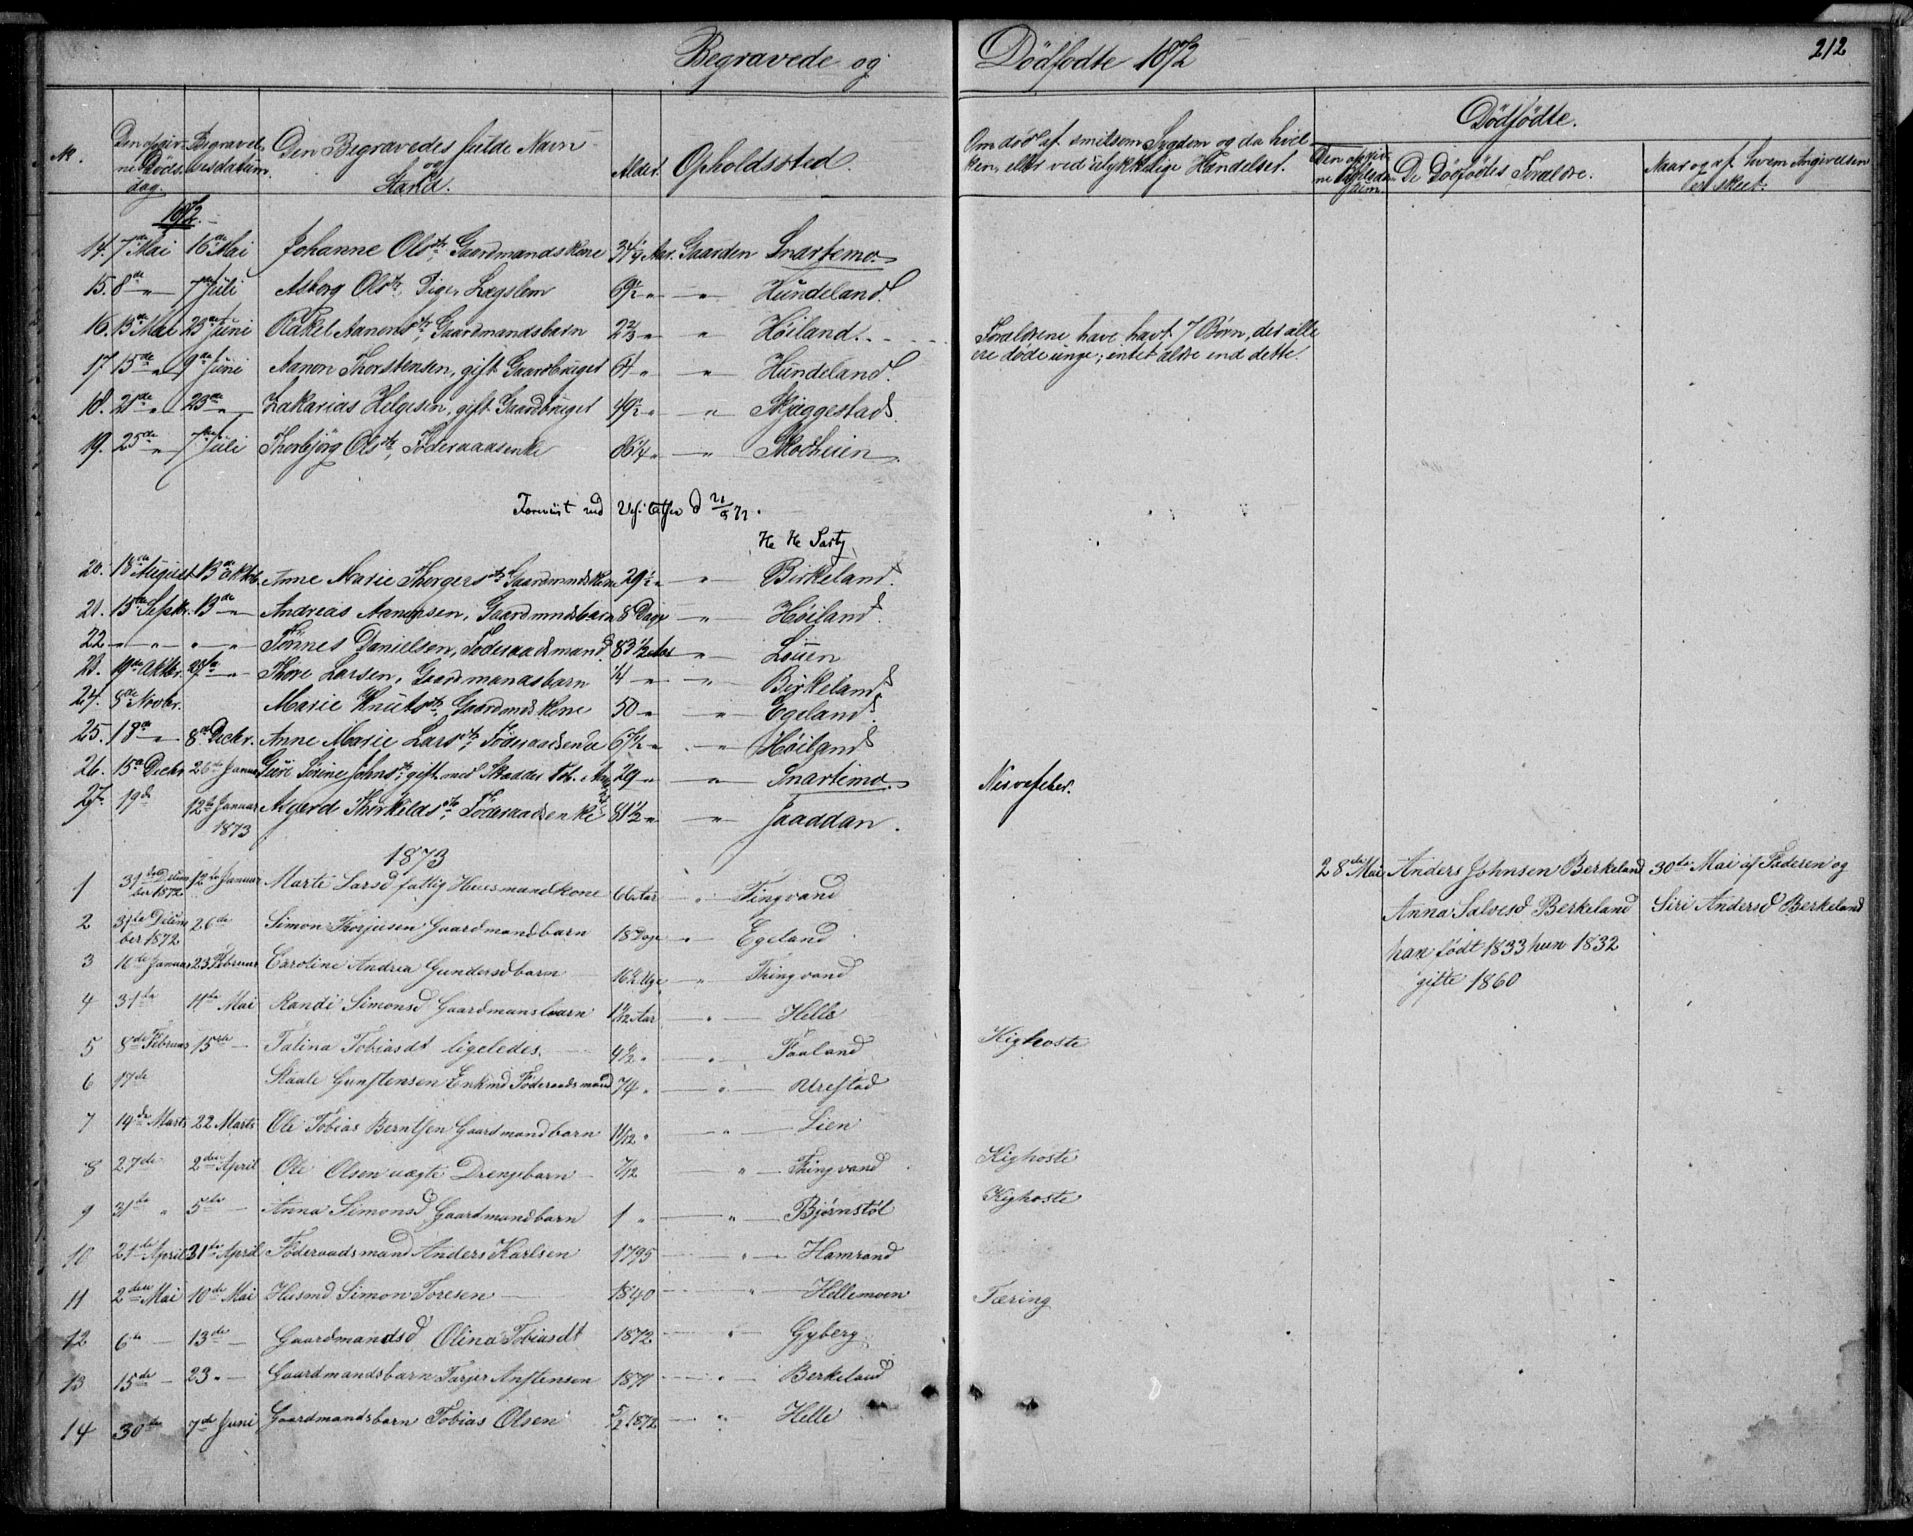 Begravede og Dödfödte 1872
212
N.
Den angivne Dödsdag
Begravelsesdatum
Den Begravedes fulde Navn og Stand.
Alder.
Opholdssted.
Om död af smitsom Sygdom og da hvilken, eller ved ulykkelige Hændelser.
Dödfödte.
De Dödfödtes Forældre.
Naar og af hvem Angivelsen er skeet.
1872.
14. 7de Mai 16de Mai Johanne Olsdtr, Gaardmandskone 34 1/4 Aar. Gaarden Snartemo.
15. 8de " 7de Juli Asborg Olsdtr, Pige, Lægslem 69 1/2 " " Hundeland.
16. 13de Mai 23de Juni Rakel Aanensdtr, Gaardmandsbarn 2 2/3 " " Höiland. Forældrene have havt 7 Børn, der alle
ere døde unge; intet ældre end dette.
17 15de " 9de Juni Aanon Thorstensen, gift Gaardbruger 64 " " Hundeland.
18. 21de " 23de " Zakarias Helgesen, gift Gaardbruger 49 1/2 " " Skjeggestad.
19. 25de " 7de Juli Thorbjörg Olsdtr, Föderaadsenke 86 1/4 " " Skoeheien
20. 18de August 13de Oktob. Anne Marie Thorgersdtr Gaardmandskone 29 1/2 " " Birkeland.
21. 15de Septbr. 13de " Andreas Aanensen, Gaardmndsbarn 8 Dage " Höiland.
22 " " " " Tönnes Danielsen, Föderaadsmand 83 1/2 Aar " Louen
23. 19de Oktbr. " Thore Larsen, Gaardmandsbarn 1/4 " " Birkeland
24. 8de Novbr. Marie Knutsdtr, Gaardmdskone 50 " " Egeland.
25. 18de " 8de Decbr. Anne Marie Larsdtr, Föderaadsenke 67 1/2 " " Höiland
26. 15de Decbr 26de Januar Guri Serine Johnsdtr, gift med Skrædder 29 " " Snartemo. Nervefeber.
27. 19de 12te Januar 1873 Asgerd Thorkildsdtr, Föderaadsenke 81 1/2 " " Jaaddan.
1873
1 31te December 1872 12te Januar Marte Larsd fattig Huusmandkone 66 Aar " Tingvand
28de Mai Anders Johnsen Berkeland 30te Mai af Faderen og
Anna Salvesd Berkeland Siri Andersd Berkeland
han født 1833 hun 1832
gifte 1860
2 31te December 1872 26de Simon Thorjusen Gaardmandbarn 18 Dage " Egeland
3 16de Januar 23 Februar Caroline Andrea Gundersd barn 16 1/2 Uge " Thingvand
4 31te 11te Mai Randi Simonsd Gaardmansbarn 1 1/12 Aar " Helle
5 8de Februar 15de Talina Tobiasdt ligeledes. 4 1/2 " " Faaland Kighoste
6 17de Staale Gunstensen Enkmd Föderaadsmand 74 " " Urestad
7 14de Marts 22 Marts Ole Tobias Berntsen Gaardmandbarn 11/12 " " Lien
8 27de 2den April Ole Olsen uægte Drengebarn 7/12 " Thingvand Kighoste
9 31te " 5te Anna Simonsd Gaardmandbarn 1 " " Bjørnstøl Kighoste
10 21de April 31te April Föderaadsmand Anders Karlsen 1795 " Hamrand
11 2den Mai 10de Mai Husmd Simon Toresen 1840 " Hellemoen Tæring
12 6te 13de Gaardmandsd Olina Tobiasdt 1872 " Gyberg
13 15de 23 " Gaardmandsbarn Tarjer Anstensen 1871 " Berkeland
14 30te 7de Juni Gaardmandsbarn Tobias Olsen 5/2 1872 " Helle